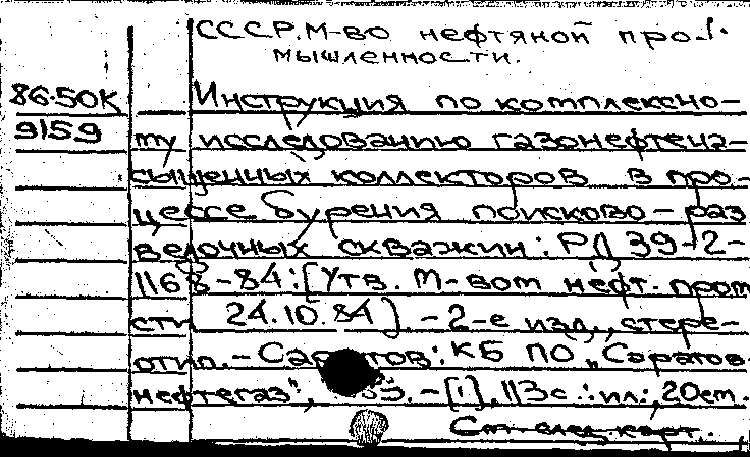 СССР. М-во нефтяной про-
мышленности.
86-50К Инструкция по комплексно-
9159 му исследованию газонефтена-
сыщенных коллекторов в про-
цессе бурения поисково-раз
ведочных скважин: РД 39-2-
1168-84: [Утв. М-вом нефт. пром
сти 24.10.84]. - 2-е изд., стере-
отип. - Саратов: КБ ПО „Саратов
нефтегаз", - [1], 113с.: ил.; 20см.
См. след. карт.